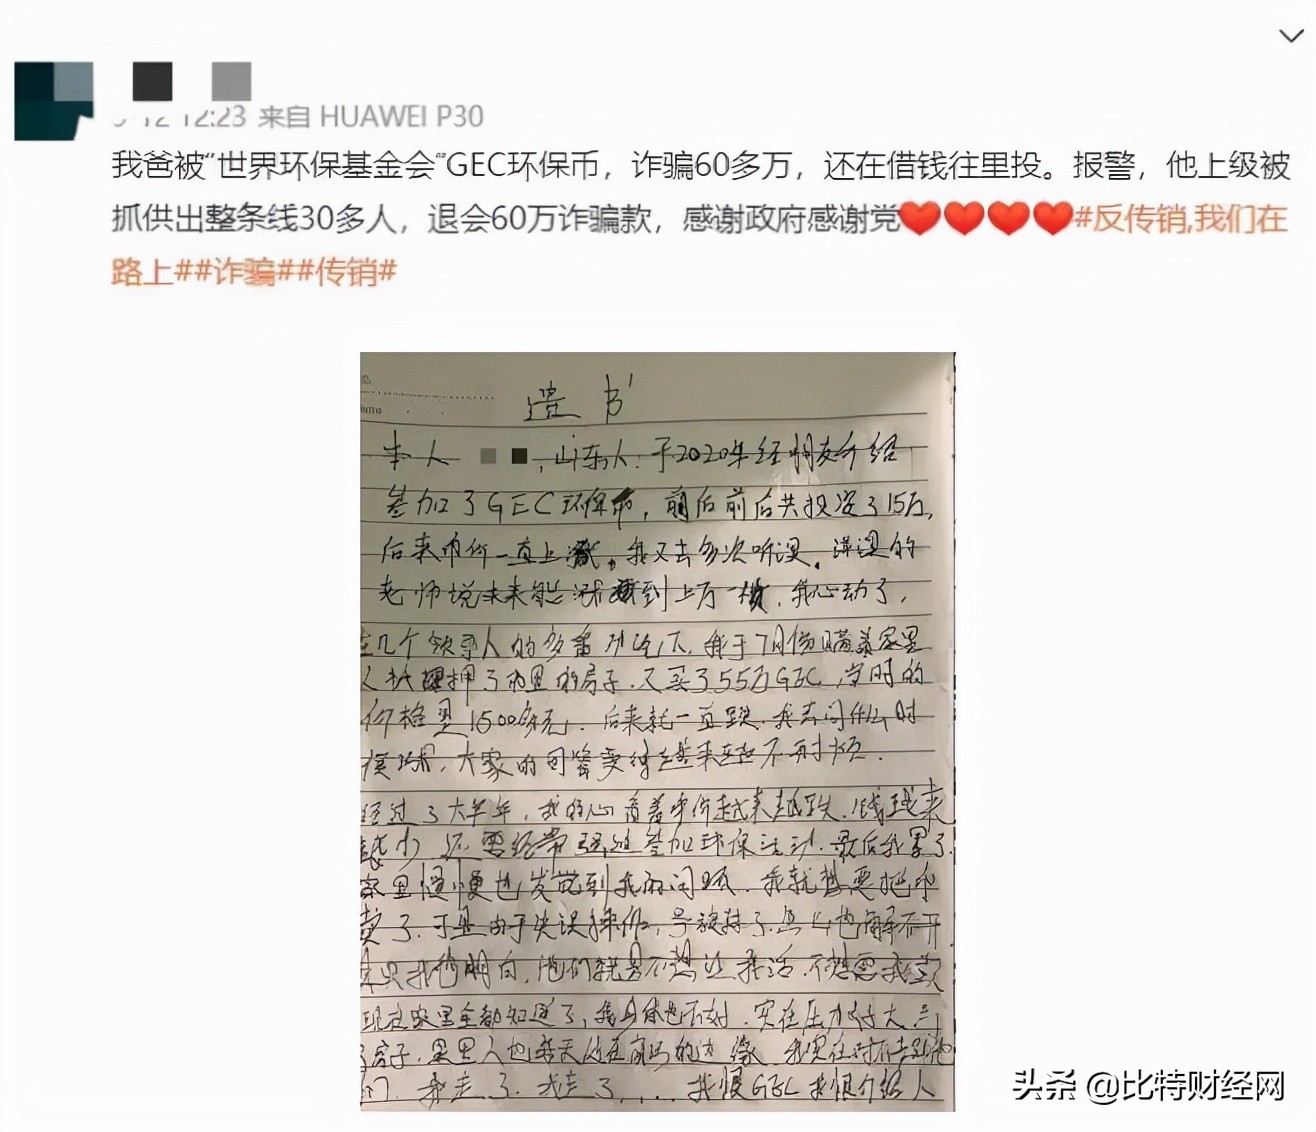 12:23 来自 HUAWEI P30
我爸被“世界环保基金会”GEC环保币，诈骗60多万，还在借钱往里投。报警，他上级被
抓供出整条线30多人，退会60万诈骗款，感谢政府感谢党❤❤❤❤#反传销,我们在
路上##诈骗##传销#
遗书
本人，山东人.于2020年经朋友介绍
参加了GEC环保币，前后前后共投资了15万,
后来币价一直上涨。我又去多次听课。讲课的
老师说未来能涨到上万一枚，我心动了，
几个领导人的多番 下，我于7月份瞒着家里
人抵押了 的房子.又买了55万GEC，当时的
价格是1500多元，后来就一直跌.我去问什么时
候涨，大家的回答变得越来越不耐烦.
经过了大半年，我的心看着币价越来越跌.钱越来
越少 还要经常 参加环保活动.最后我累了.
家里慢慢也发觉到我的问题.我就想要把币
卖了.可是由于失误操作，号被封了. 也解不开
我明白，他们就是不想让我活.不想要我卖
现在家里全都知道了，我身体也不好.实在压力太大
房子.家里人也每天 在崩溃的边缘 我实在对不起他
们.我走了.我走了..... 我恨GEC 我恨介绍人
头条 @比特财经网